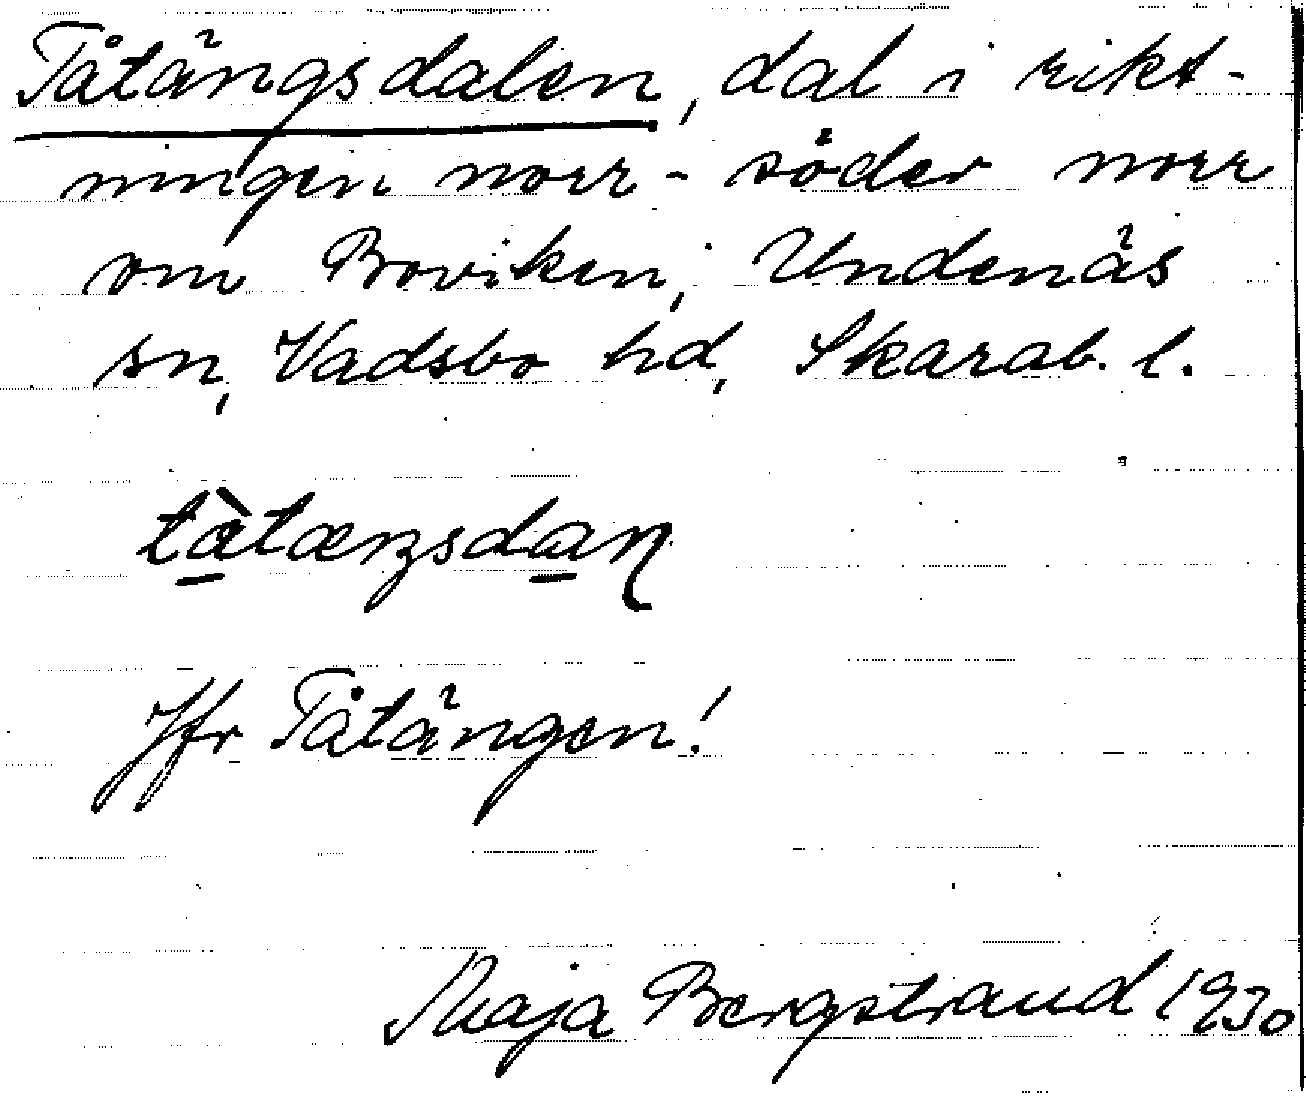 Tåtängsdalen, dal i rikt-
ningen norr - söder norr
om Boviken, Undenäs
sn, Vadsbo hd, Skarab. l.
tàtæŋsdaɳ
Jfr Tåtängen!
Maja Bergstrand 1930